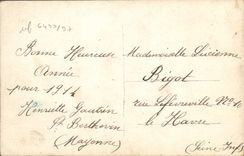 Bonne Heureuse
Année
pour 1914
Henriette Gautrin
St Berthevin
(Mayenne)
Mademoiselle Lucienne
Bigot
rue Lefèvreville N°
le Havre
Seine Infre